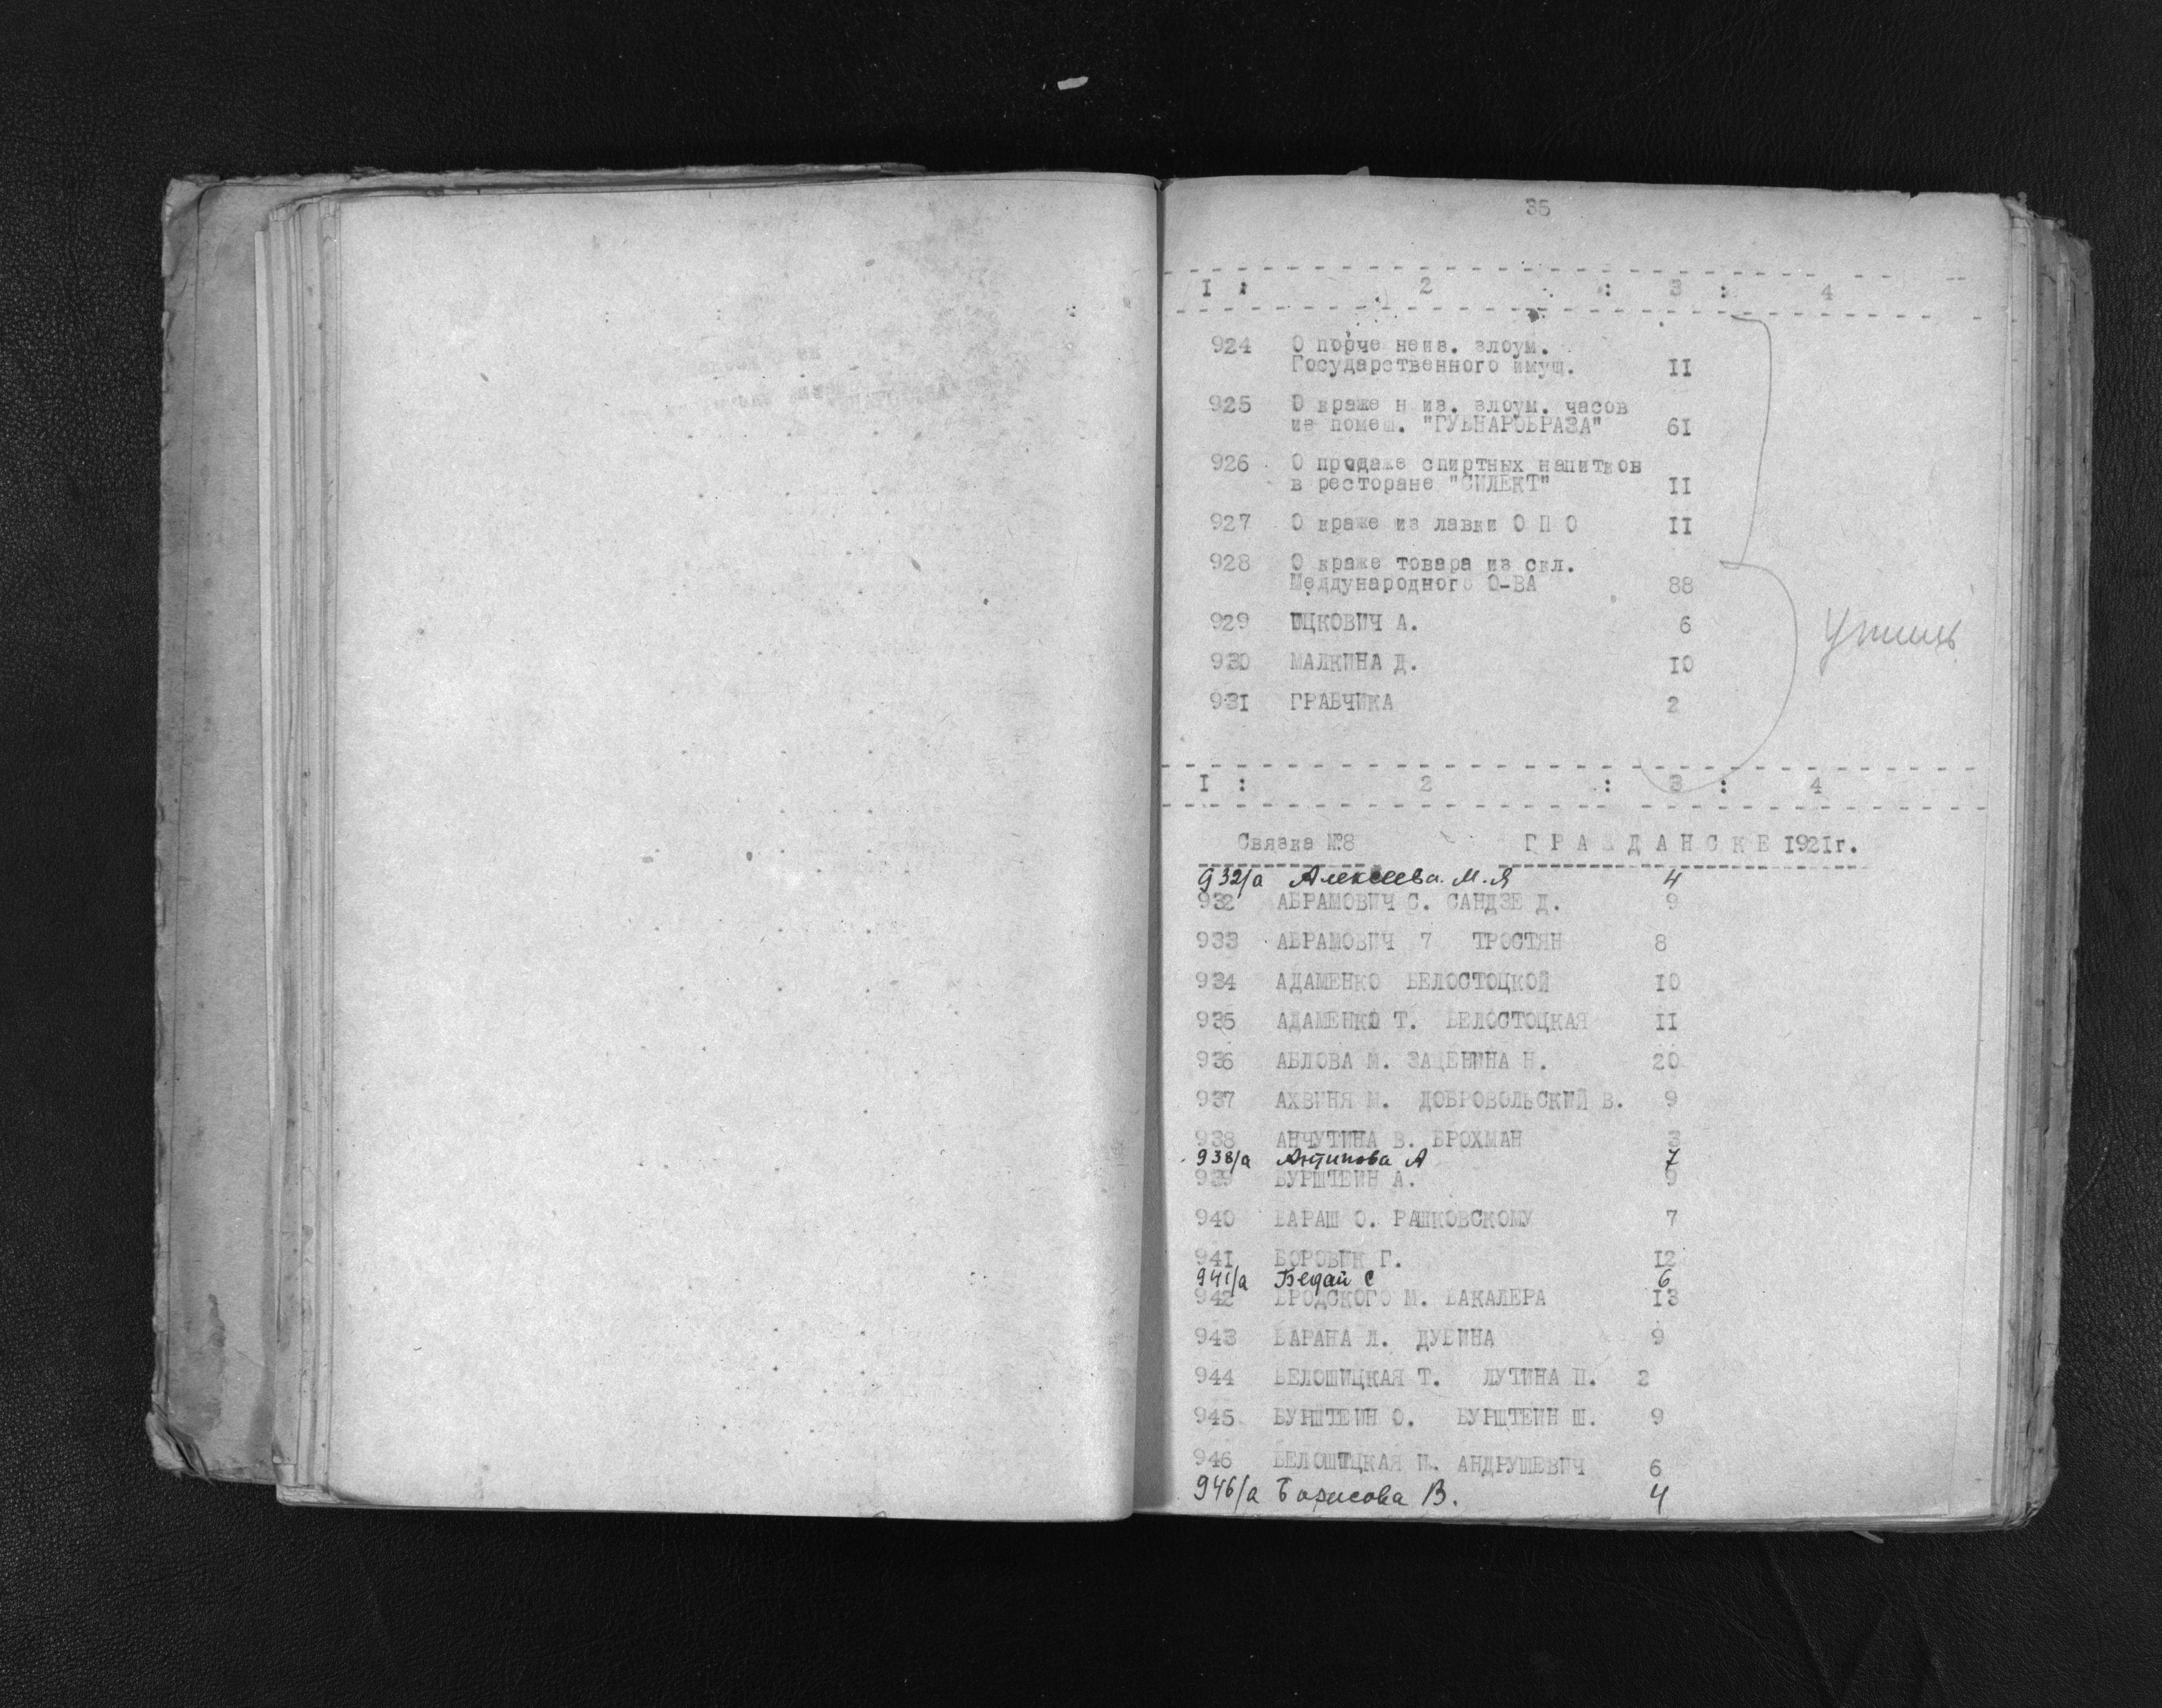 35
I : 2 : 3 : 4
924 О порче неиз. злоум.
Государственного имущ. II
925 О краже н из. злоум. часов
из помещ. "ГУБНАРОБРАЗА" 6I
926 О продаже спиртных напитков
в ресторане "СИЛЕКТ" II
927 О краже из лавки О П О II
928 О краже товара из скл.
Меддународного О-ВА 88
929 ИЦКОВИЧ А. 6
930 МАЛКИНА Д. I0
93I ГРАБЧИКА 2
Утиль
I : 2 : 3 : 4
Связка №8 Г Р А Ж Д А Н С К Е I92Iг.
932/а Алексеева. М.Я 4
932 АБРАМОВИЧ С. САНДЗЕ Д. 9
933 АБРАМОВИЧ 7 ТРОСТЯН 8
934 АДАМЕНКО БЕЛОСТОЦКОЙ I0
935 АДАМЕНКО Т. БЕЛОСТОЦКАЯ II
936 АБЛОВА М. Н. 20
937 АХВИНЯ М. ДОБРОВОЛЬСКИЙ В. 9
938 АНЧУТИНА В. БРОХМАН 3
938/а Антипова А 7
939 БУРШТЕИН А. 9
940 БАРАШ О. РАШКОВСКОМУ 7
94I БОРОВИК Г. I2
941/а Бедай С 6
942 БРОДСКОГО М. БАКАЛЕРА I3
943 БАРАНА Л. ДУБИНА 9
944 БЕЛОШИЦКАЯ Т. ЛУТИНА П. 2
945 БУРШТЕИН О. БУРШТЕИН Ш. 9
946 БЕЛОШИЦКАЯ П. АНДРУШЕВИЧ 6
946/а Борисова В. 4